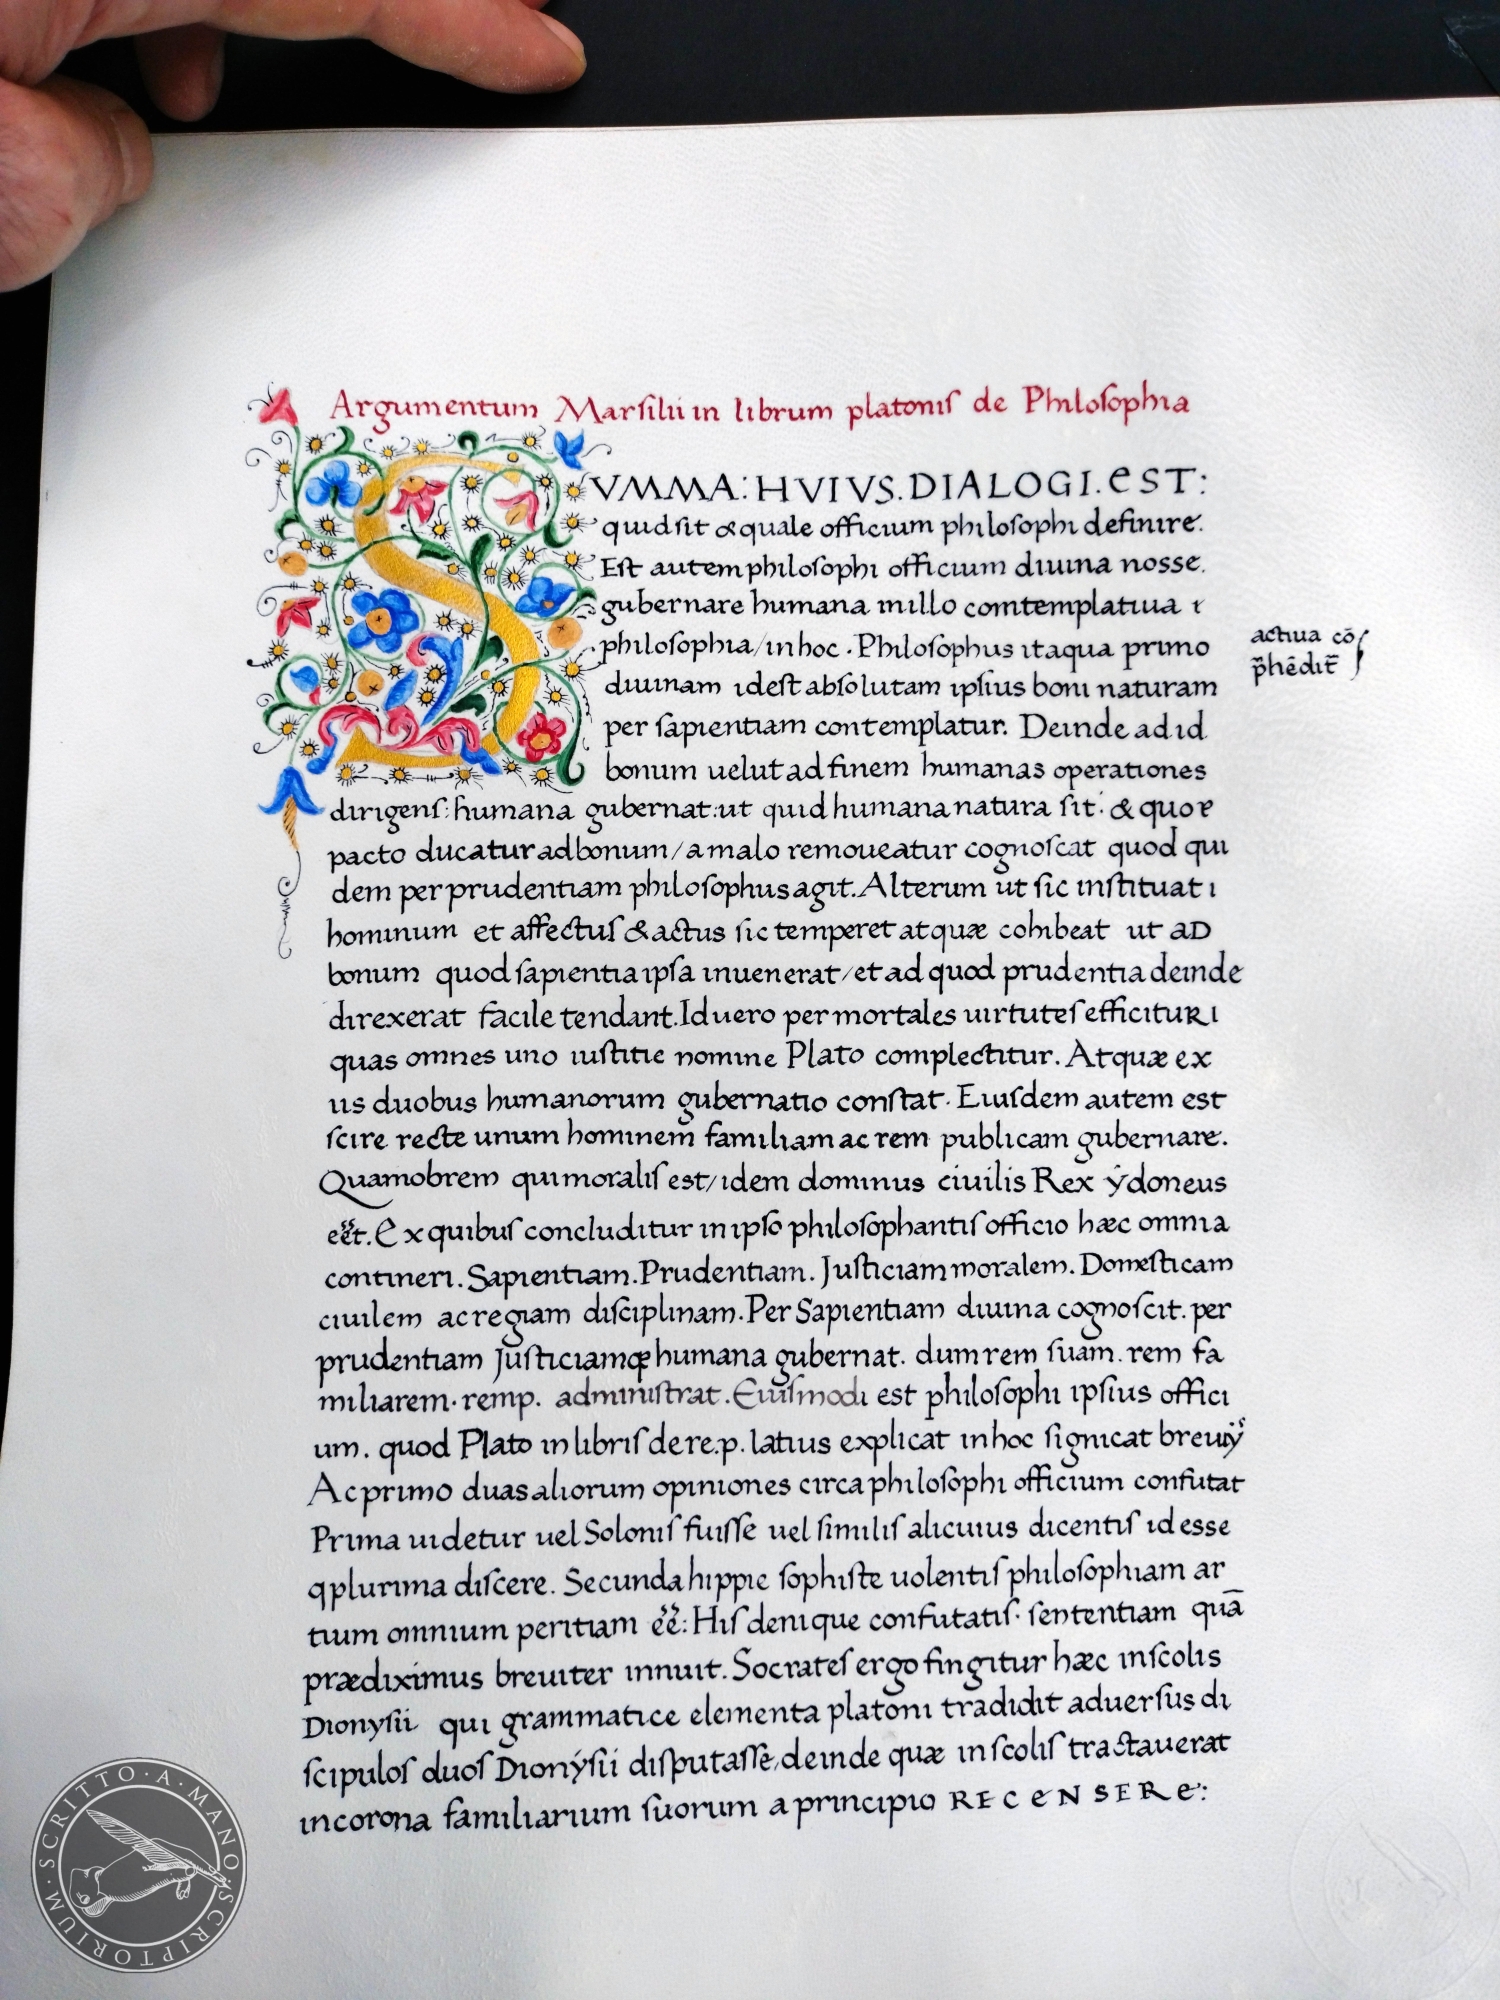 Argumentum Marſilii in librum platoniſ de Philoſophia
SVMMA: HVIVS. DIALOGI. EST:
quid ſit & quale officium philoſophi definire.
Eſt autem philoſophi officium diuina nosse.
gubernare humana millo comtemplatiua &
philoſophia/in hoc. Philoſophus itaqua primo
actiua cō
p̄hēdit̄
diuinam idest abſolutam ipſius boni naturam
per ſapientiam contemplatur. Deinde ad id
bonum uelut ad finem humanas operationes
dirigenſ: humana gubernat: ut quid humana natura ſit: & quo e
pacto ducatur ad bonum/a malo remoueatur cognoſcat quod qui
dem per prudentiam philoſophus agit. Alterum ut ſic inſtituat i
hominum et affectuſ & actus ſic temperet atquæ cohibeat ut aD
bonum quod ſapientia ipſa inuenerat/et ad quod prudentia deinde
direxerat facile tendant. Id uero per mortales uirtuteſ efficituRI
quas omnes uno iuſtitie nomine Plato complectitur. Atquæ ex
iis duobus humanorum gubernatio conſtat. Eiuſdem autem est
ſcire recte unum hominem familiam ac rem publicam gubernare.
Quamobrem qui moraliſ est/idem dominus ciuilis Rex ẏdoneus
eēt. Ex quibuſ concluditur in ipſo philoſophantiſ officio hæc omnia
contineri. Sapientiam. Prudentiam. Juſticiam moralem. Domeſticam
ciuilem ac regiam diſciplinam. Per Sapientiam diuina cognoſcit. per
prudentiam Juſticiamqe humana gubernat. dum rem ſuam. rem fa
miliarem. remp. adminiſtrat. Eiuſmodi est philoſophi ipſius offici
um. quod Plato in libriſ de re.p. latius explicat in hoc ſignicat breuiy
Ac primo duas aliorum opiniones circa philoſophi officium confutat
Prima uidetur uel Soloniſ fuiſſe uel ſimiliſ alicuius dicentiſ id esse
q plurima diſcere. Secunda hippie ſophiſte uolentiſ philoſophiam ar
tium omnium peritiam eē: Hiſ denique confutatiſ. ſententiam quā
prædiximus breuiter innuit. Socrateſ ergo fingitur hæc in ſcolis
Dionyſii qui grammatice elementa platoni tradidit aduerſus di
ſcipuloſ duoſ Dionẏſii diſputaſſe, deinde quæ in ſcoliſ tractauerat
in corona familiarium ſuorum a principio RECENSERE:
SCRITTO · A · MANO · SCRIPTORIUM ·